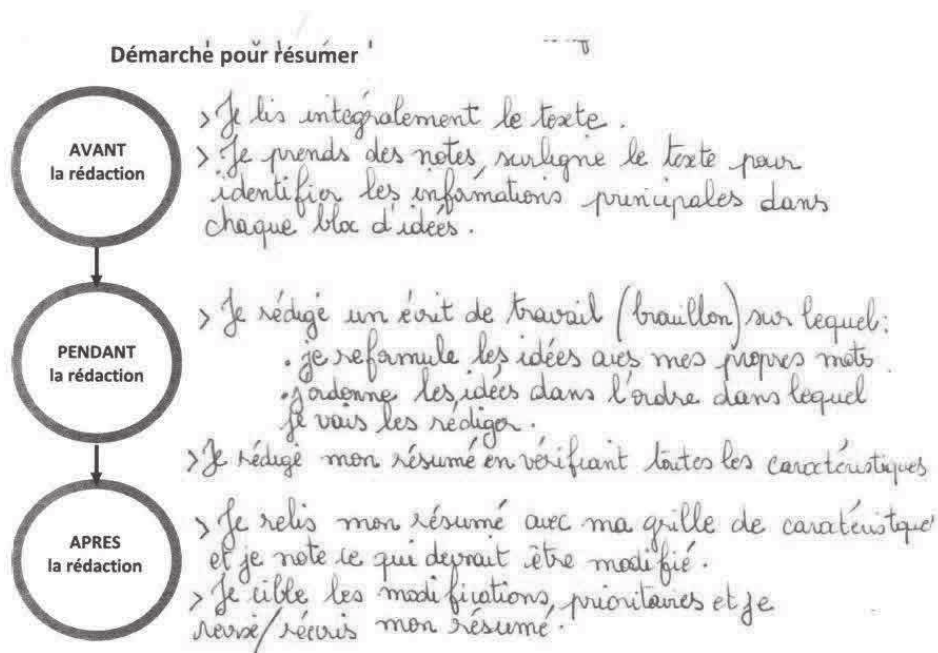 Démarche pour résumer
AVANT
la rédaction
> Je lis intégralement le texte.
> Je prends des notes, surligne le texte pour
identifier les informations principales dans
chaque bloc d'idées.
PENDANT
la rédaction
> Je rédige un écrit de travail (brouillon) sur lequel:
. je reformule les idées avec mes propres mots.
. j'ordonne les idées dans l'ordre dans lequel
je vais les rédiger.
> Je rédige mon résumé en vérifiant toutes les caractéristiques
APRES
la rédaction
> Je relis mon résumé avec ma grille de caractéristique
et je note ce qui devrait être modifié.
> Je cible les modifications prioritaires et je
révise/réécris mon résumé.